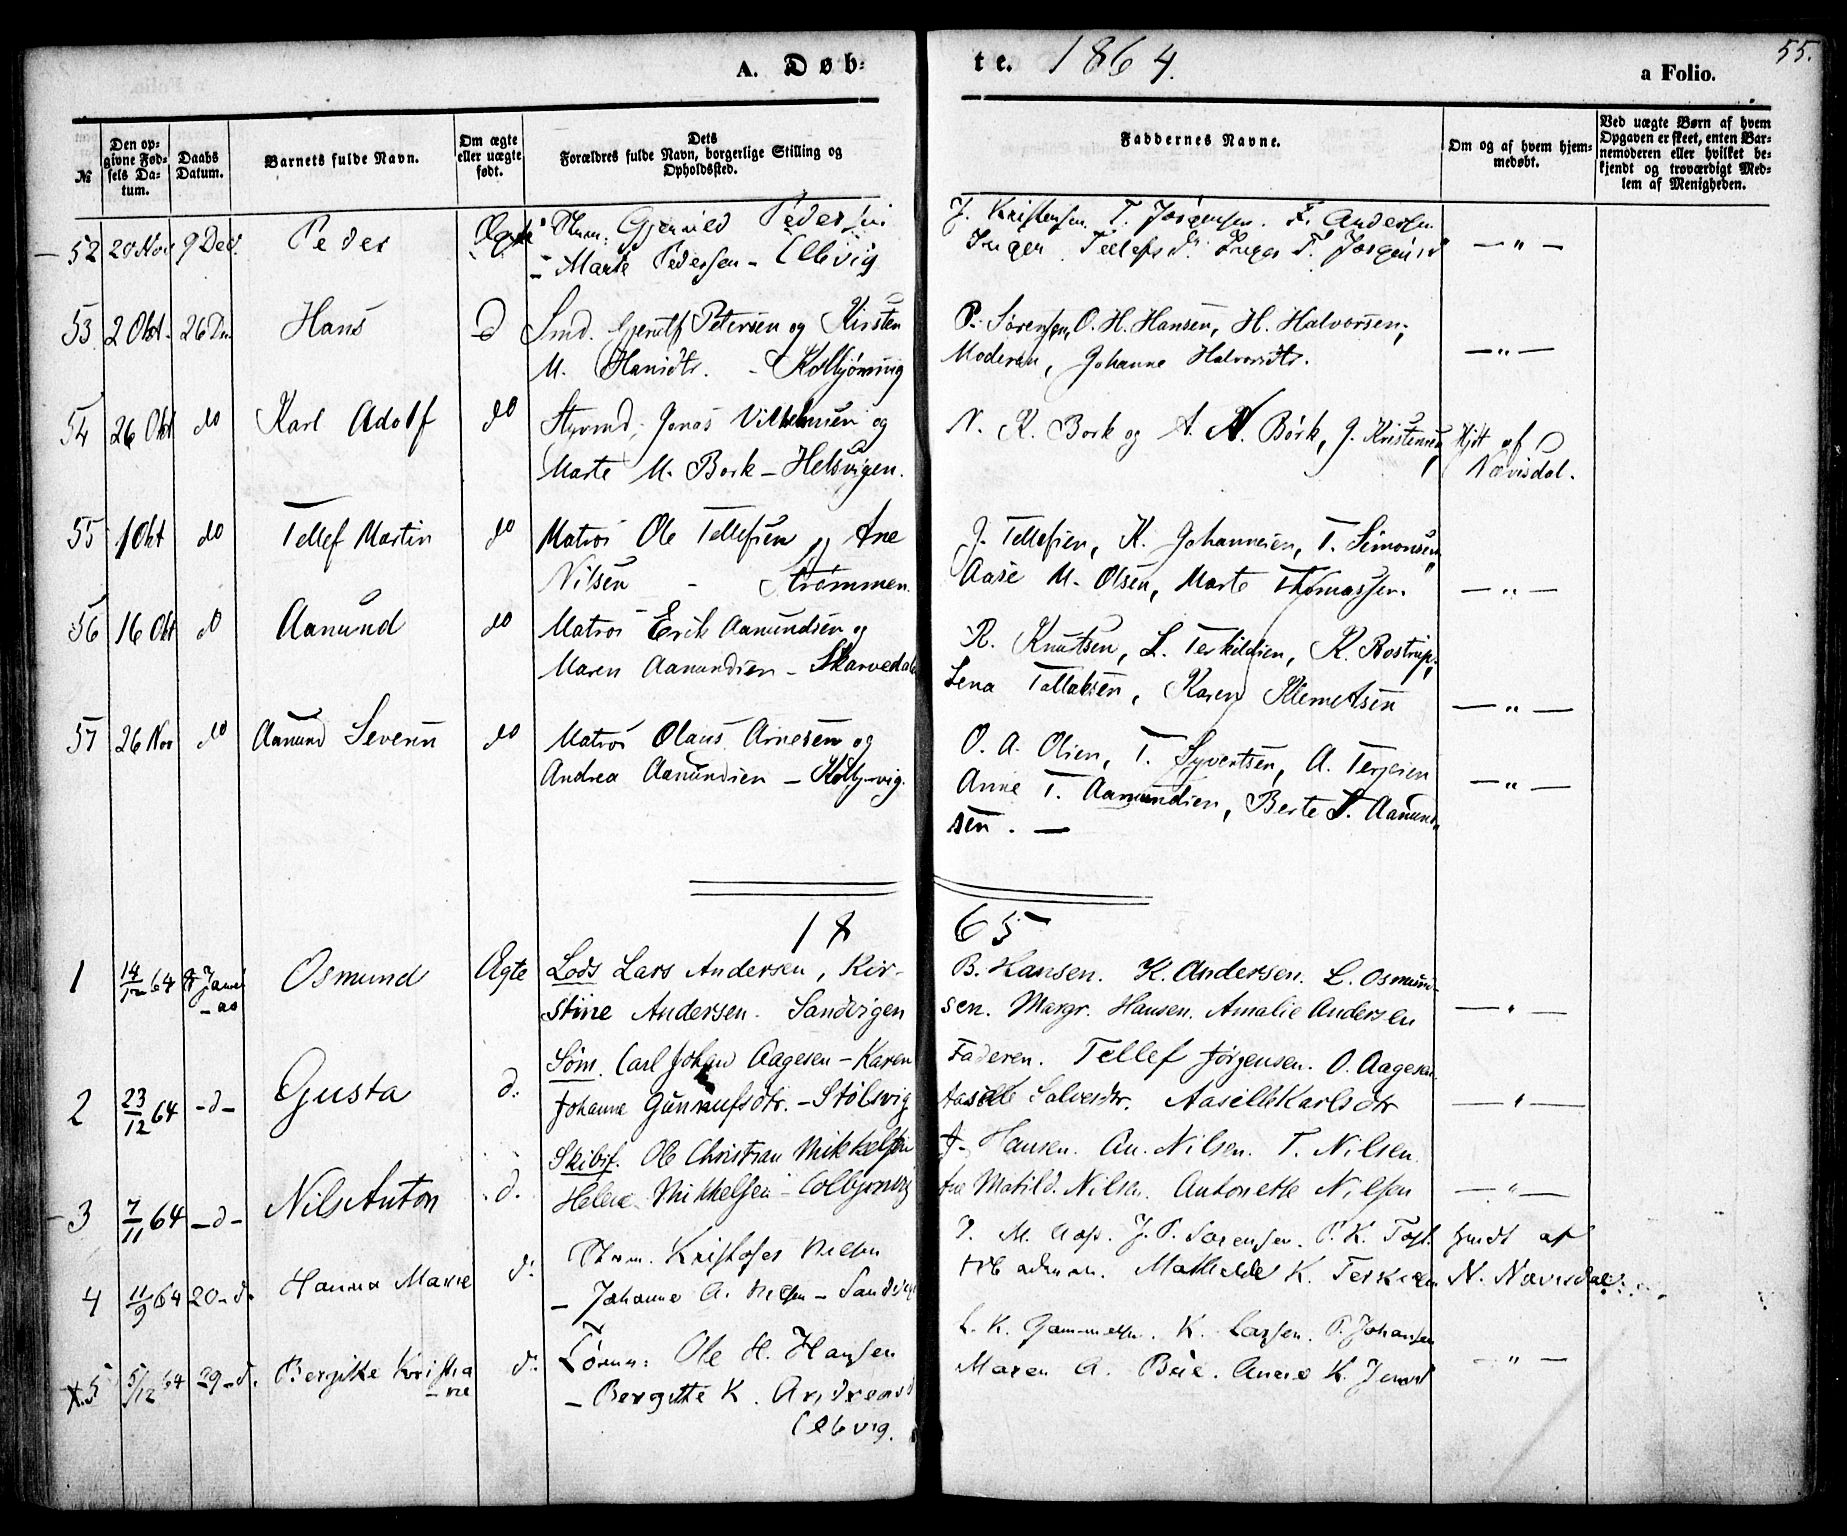 A. Døb- te. 1864. a Folio. 55.
№ Den opgivne Fødsels Datum. Daabs Datum. Barnets fulde Navn. Om ægte eller uægte født. Dets Forældres fulde Navn, borgerlige Stilling og Opholdssted. Faddernes Navne. Om og af hvem hjemmedøbt. Ved uægte Børn af hvem Opgaven er skeet, enten Barnemoderen eller hvilket bekjendt og troværdigt Medlem af Menigheden.
52 20 Nov 9 Dec. Peder Ægte Pedersen J. Kristensen. T. Jørgensen. F. Andersen
– Marte Pedersen – Inger Tellefsd. Inger T. — " —
53 2 Okt. 26 De. Hans D Smd. Gjerulf Petersen og Kirsten P. Sørensen, O. H. Hansen, H. Halvorsen,
M. Hansdtr. - Kolbjørnvig Moderen, Johanne Halvorsdtr. — " —
54 26 Okt do Karl Adolf do Styrmd. Jonas Vilhelmsen og N. K. Bork og A. N. Bork, J. Kristensen, Hjdt af
Marte M. Bork – Helsvigen. Nævisdal.
55 1 Okt do Tellef Martin do Matros Ole Tellefsen og Ane J. Tellefsen, K. Johannesen, T. Simonsen,
Nilsen - Strømmen. Aase M. Olsen, Marte Thomassen. — " —
56 16 Okt do Aanund do Matros Erik Aanundsen og R. Knutsen, L. Terkildsen, K. Rostrup,
Maren Aanundsen – Skarvedal Lena Tallaksen, Karen Klemetsen — " —
57 26 Nov do Aanund Severin do Matros Olaus Arnesen og O. A. Olsen, T. Syvertsen, A. Terjesen
Andrea Aanundsen – Kolbj.vig. Anne T. Aanundsen, Berte S. Aanund-
sen. — — " —
18 65
1 14/12 64 Janu- Osmund Ægte Lods Lars Andersen, Kir- B. Hansen. K. Andersen. L. Osmund-
stine Andersen. Sandvigen sen. Margr. Hansen. Amalie Andersen — " —
2 23/12 64 -d- Gusta d. Søm. Carl Johan Aagesen – Karen Faderen. Tellef Jørgensen. O. Aagesen.
Johanne Gunnufsdtr. – Stølsvig Aasille Salvesdtr. Aasille Karlsdtr — " —
3 7/11 64 -d- Nils Anton d. Skibsf. Ole Christian Mikkelsen J. Hansen. An. Nilsen. T. Nilsen.
Helene Mikkelsen – Colbjørnvig Ane Matild. Nilsen. Antonette Nilsen — " —
4 11/9 64 20 -d. Hanna Marie d. Kristofer Nilsen M. J. P. Sørensen. P. K. hjmdt af
– Johanne A. Nilsen – Sandvige Mathilde K. Terkilsen N. Nævisdal.
5 5/12 64 29 -d. Bergitte Kristia- d. Ole H. Hansen L. K. Gammelsn. K. Larsen. P. Johansen
ne – Bergitte K. Andreasd Maren A. Anne K. — " —